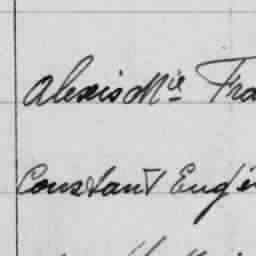 Alexis Mie Fra
Constant Eugè